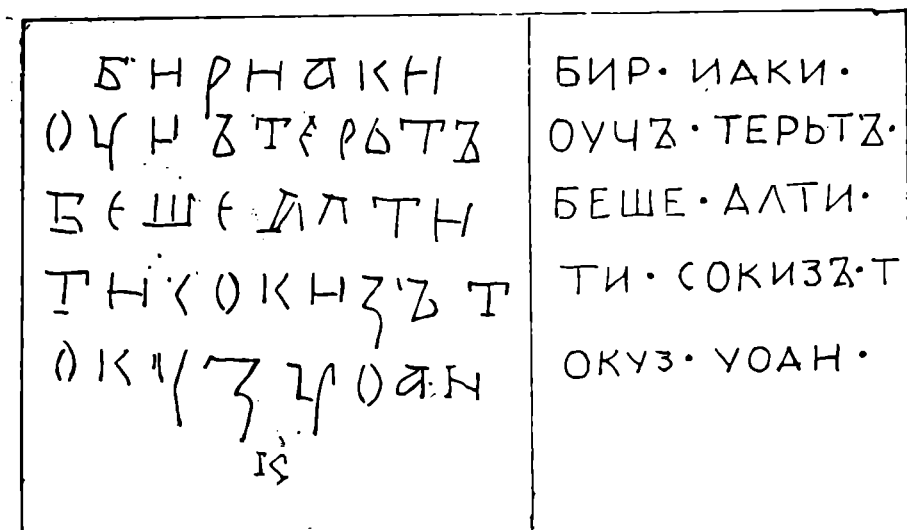 БНРНАКН
ОУНЪТЕРЬТЪ
БЕШЕАЛТН
ТНСОКНЗЪ Т
ОКУЗУОАН
БИР· ИАКИ·
ОУЧЪ· ТЕРЬТЪ·
БЕШЕ· АЛТИ·
ТИ· СОКИЗЪ·Т
ОКУЗ· УОАН·